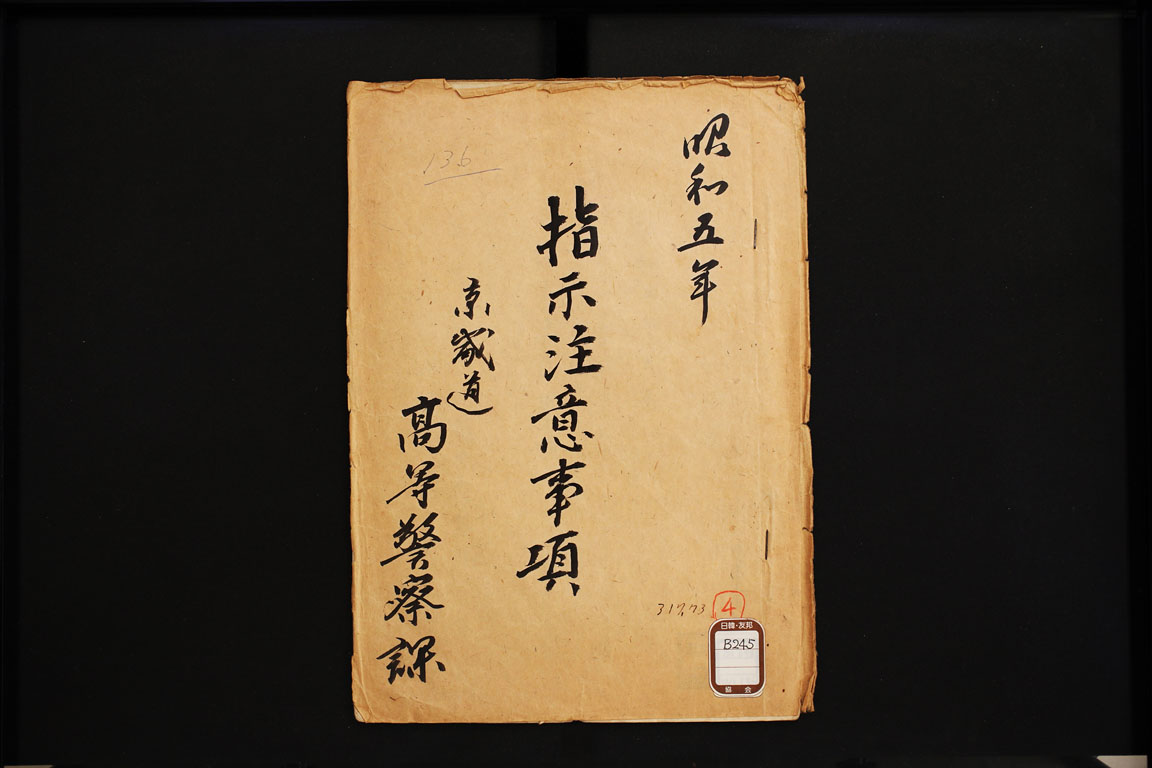 昭和五年
指示注意事項
京畿道
高等警察課
136
31773
4
日韓・友邦
B245
協会